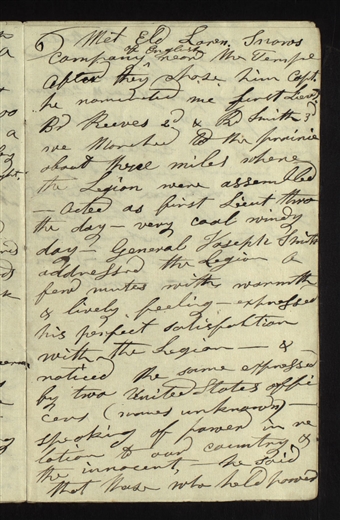 6 Met Eld Loren Snows
of English
company near the Temple
after they chose him Capt
he nominated me first Lieut
Br Reeves 2d & Br Smith 3
we Marched to the prairie
about three miles where
the Legion were assembled
— acted as first Lieut thro
the day — very cool windy
day — General Joseph Smith
addressed the Legion a
few mutes with warmth
& lively feeling — expressed
his perfect satisfaction
with the Legion — &
noticed the same expressed
by two United States offi
cers (names unknown) —
speaking of power in re
lation to our country &
the innocent, — he said
that those who held power